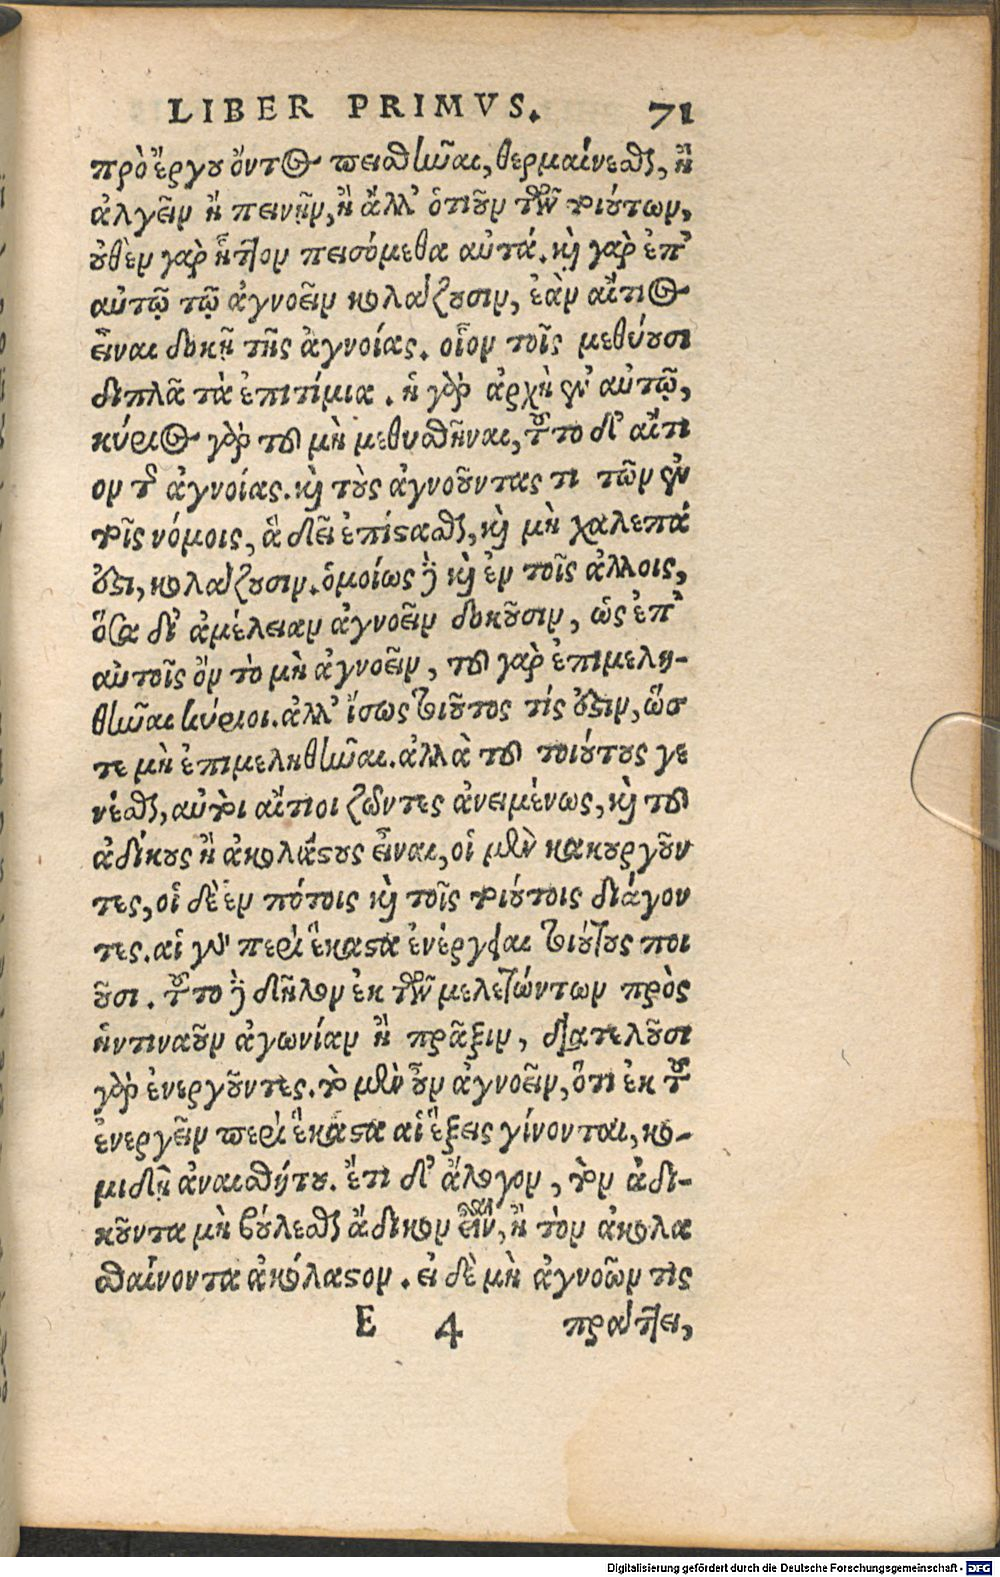 LIBER PRIMVS. 71
πρὸ ἔργου ὄντος πειθῆναι, θερμαίνεσθαι, ἢ
ἀλγεῖν ἢ πεινῇν, ἢ ἄλλ' ὁτιοῦν τῶν τοιούτων,
οὐθὲν γαρ ἧττον πεισόμεθα αὐτά. καὶ γαρ ἐπ'
αὐτῷ τῷ ἀγνοεῖν κολάζουσιν, ἐὰν αἴτιος
εἶναι δοκῇ τῆς ἀγνοίας. οἷον τοῖς μεθύουσι
διπλᾶ τὰ ἐπιτίμια. ἡ γὰρ ἀρχὴ ἐν αὐτῷ,
κύριος γὰρ τοῦ μὴ μεθυσθῆναι, τοῦτο δ' αἴτι
ον τῆς ἀγνοίας. καὶ τοὺς ἀγνοοῦντας τι τῶν ἐν
τοῖς νόμοις, ἃ δεῖ ἐπίστασθαι, καὶ μὴ χαλεπά
ἐστι, κολάζουσιν. ὁμοίως δὲ καὶ ἐν τοῖς ἄλλοις,
ὅσα δι' ἀμέλειαν ἀγνοεῖν δοκοῦσιν, ὡς ἐπ'
αὐτοῖς ὂν τὸ μὴ ἀγνοεῖν, τοῦ γαρ ἐπιμελη-
θῆναι κύριοι. ἀλλ' ἴσως τοιοῦτος τίς ἐστιν, ὥσ
τε μὴ ἐπιμεληθῆναι. ἀλλὰ τοῦ τοιούτους γε
νέσθαι, αὐτοὶ αἴτιοι ζῶντες ἀνειμένως, καὶ τοῦ
ἀδίκους ἢ ἀκολάστους εἶναι, οἱ μὲν κακουργοῦν
τες, οἱ δὲ ἐν πότοις καὶ τοῖς τοιούτοις διάγον
τες. αἱ γὰρ περὶ ἕκαστα ἐνέργειαι τοιούτους ποι
οῦσι. τοῦτο δὲ δῆλον ἐκ τῶν μελετώντων πρὸς
ἡντιναοῦν ἀγωνίαν ἢ πρᾶξιν, διατελοῦσι
γὰρ ἐνεργοῦντες. τὸ μὲν οὖν ἀγνοεῖν, ὅτι ἐκ τοῦ
ἐνεργεῖν περὶ ἕκαστα αἱ ἕξεις γίνονται, κο-
μιδῇ ἀναισθήτου. ἔτι δ' ἄλογον, τὸν ἀδι-
κοῦντα μὴ βούλεσθαι ἄδικον εἶναι, ἢ τὸν ἀκολα
σταίνοντα ἀκόλαστον. εἰ δὲ μὴ ἀγνοῶν τὶς
E 4 πράττει,
Digitalisierung gefördert durch die Deutsche Forschungsgemeinschaft - DFG